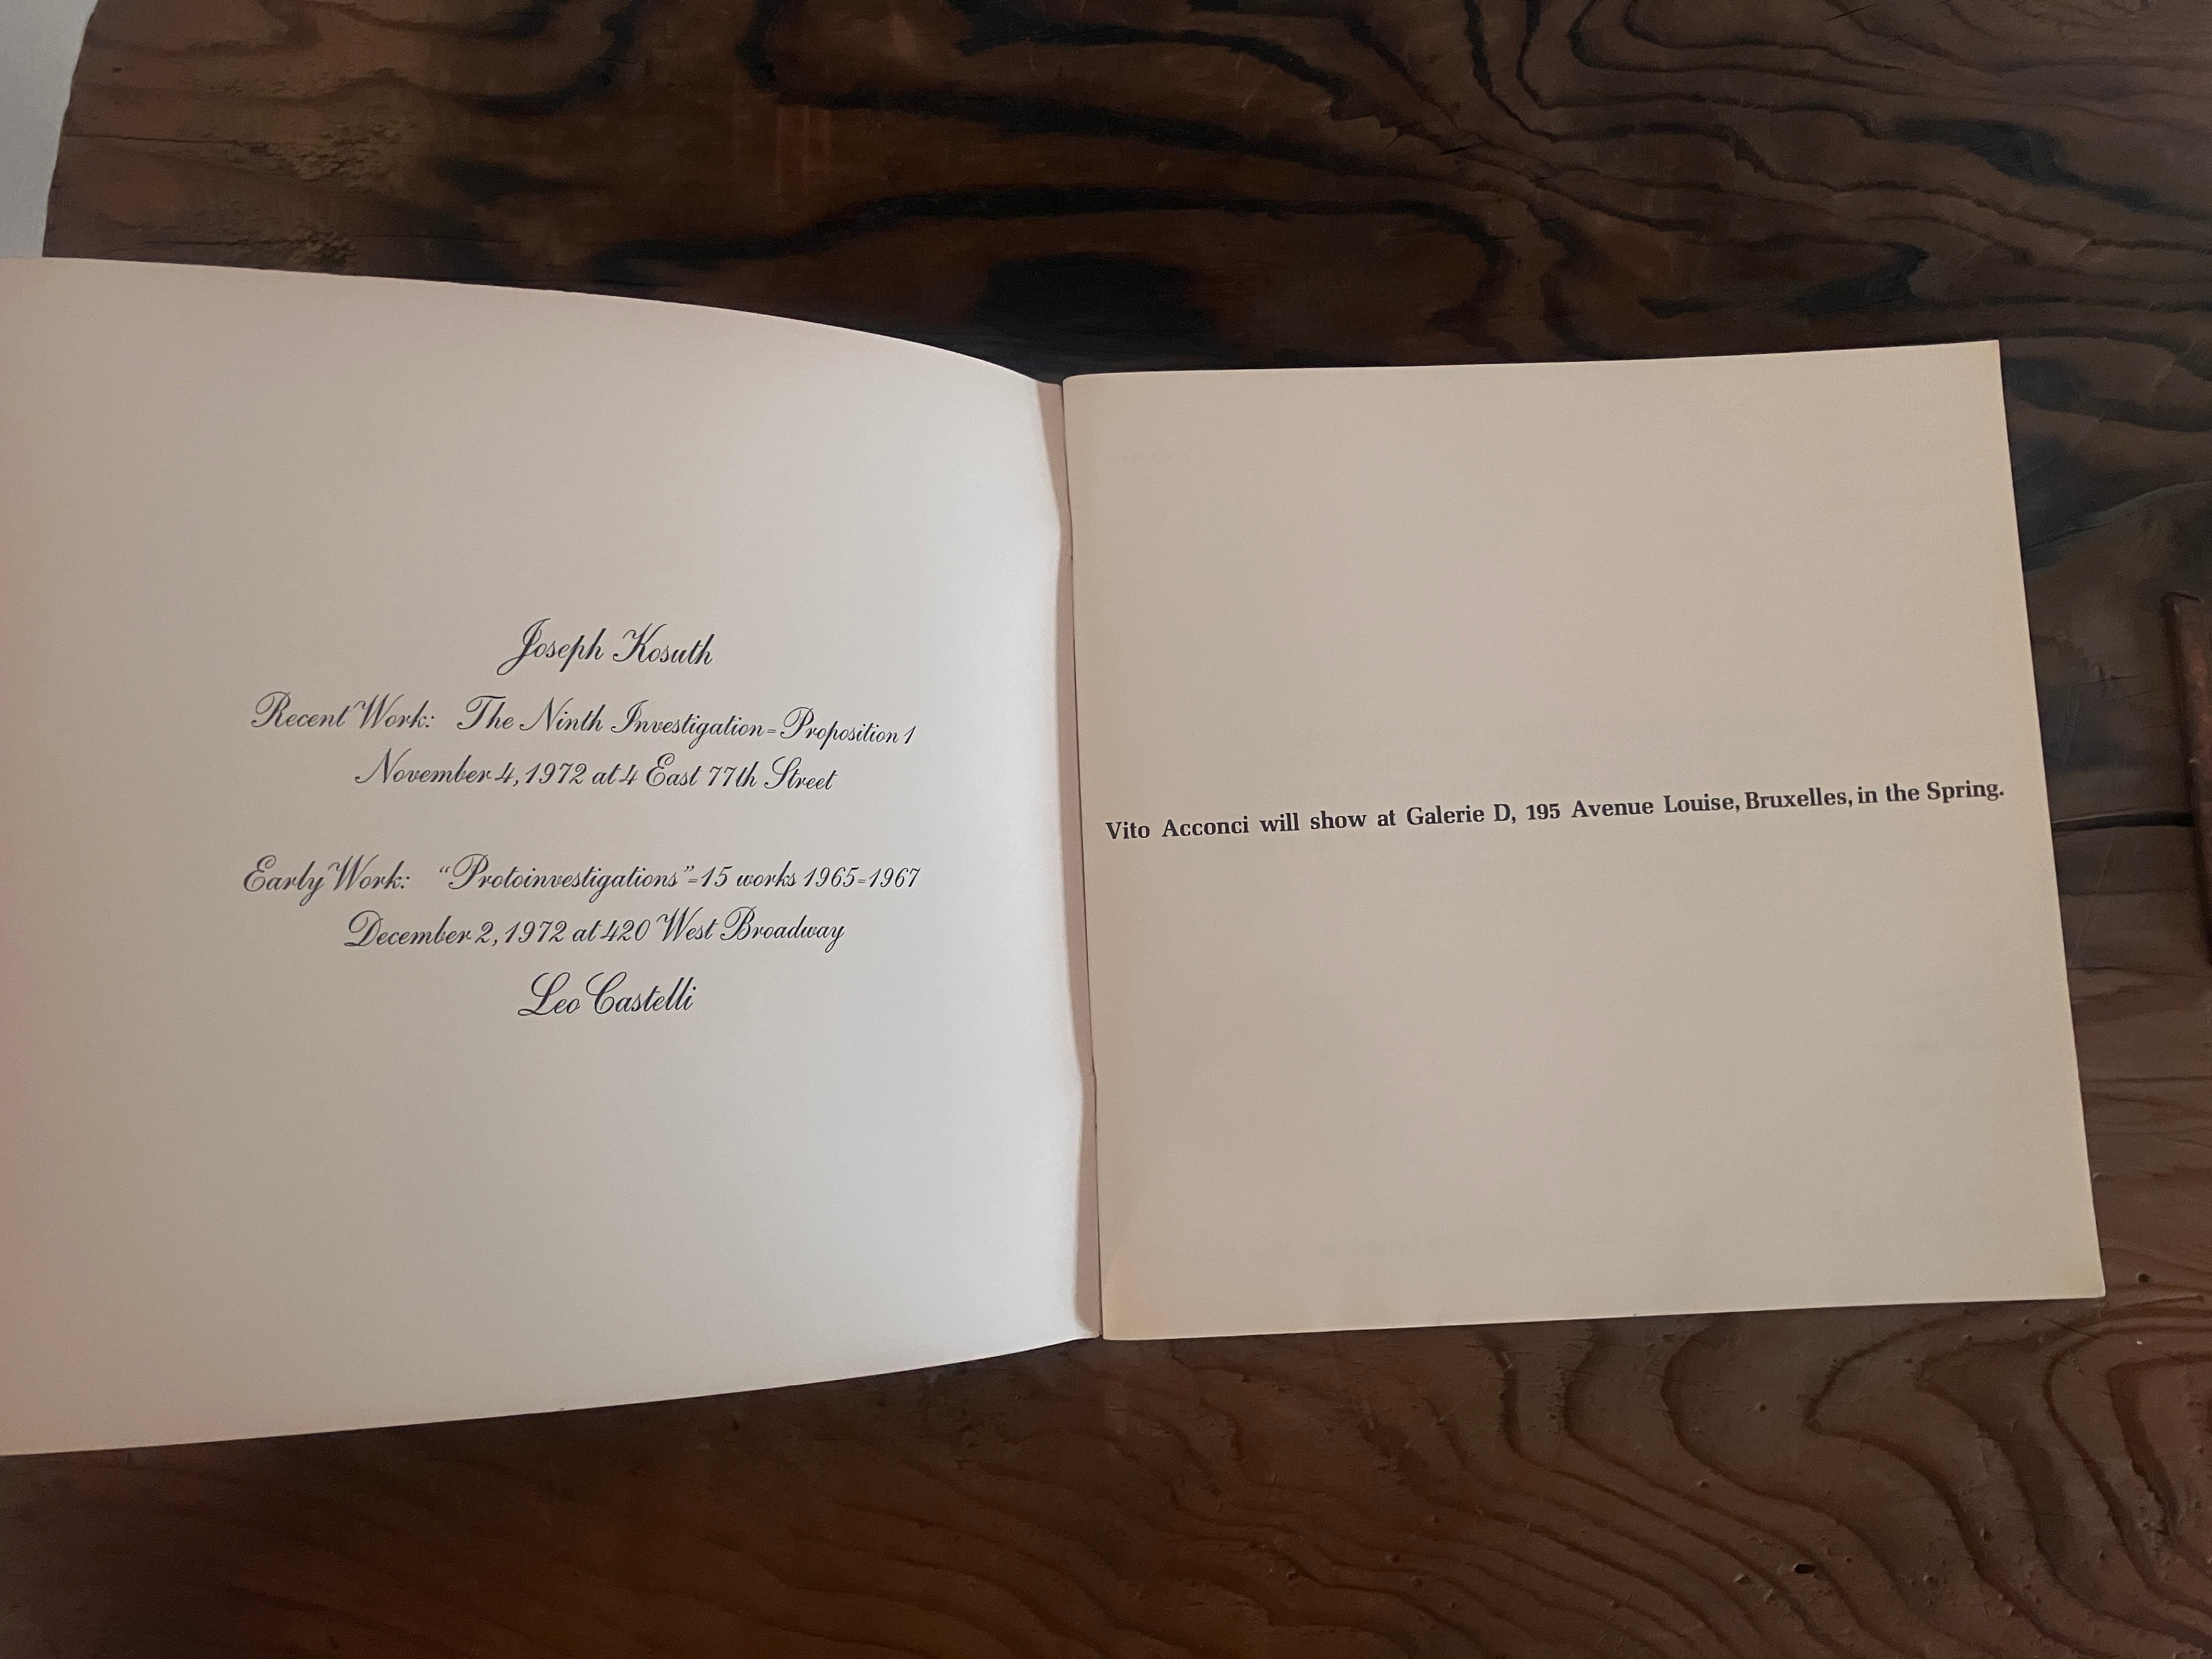 Joseph Kosuth
Recent Work: The Ninth Investigation=Proposition 1
November 4, 1972 at 4 East 77th Street
Early Work: “Protoinvestigations”=15 works 1965=1967
December 2, 1972 at 420 West Broadway
Leo Castelli
Vito Acconci will show at Galerie D, 195 Avenue Louise, Bruxelles, in the Spring.